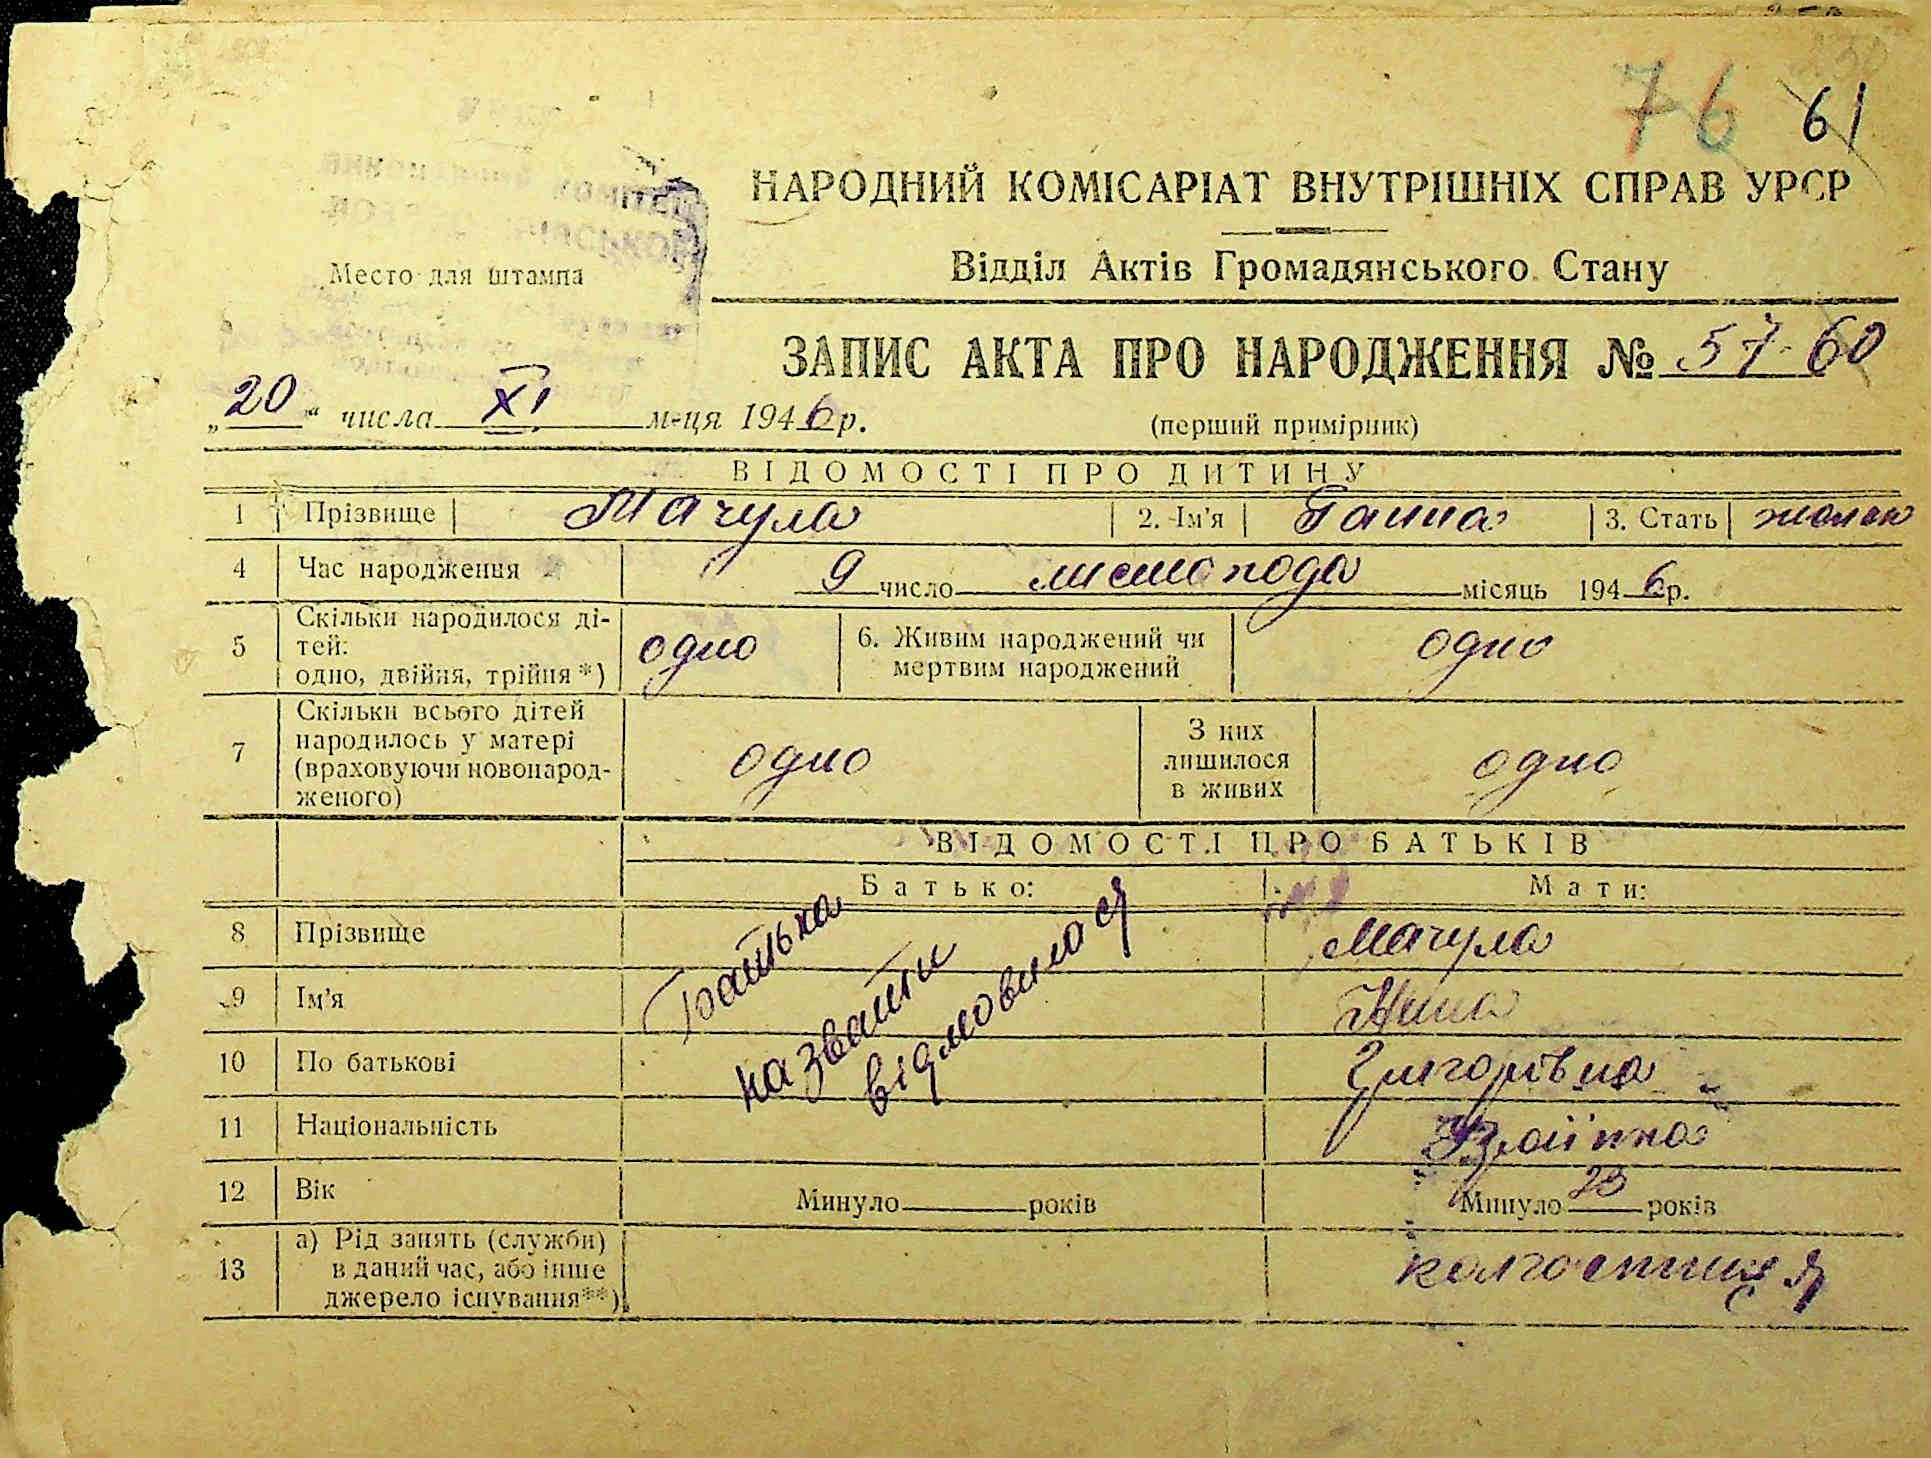 76 61
НАРОДНИЙ КОМІСАРІАТ ВНУТРІШНІХ СПРАВ УРСР
Відділ Актів Громадянського Стану
Место для штампа
ЗАПИС АКТА ПРО НАРОДЖЕННЯ № 57 60
„20“ числа XI м-ця 1946 р.
(перший примірник)
ВІДОМОСТІ ПРО ДИТИНУ
1 Прізвище Мачула 2. Ім'я Ганна 3. Стать
4 Час народження 9 число листопода місяць 1946 р.
5 Скільки народилося ді-
тей:
одно, двійня, трійня *) одно 6. Живим народжений чи
мертвим народжений одно
7 Скільки всього дітей
народилось у матері
(враховуючи новонарод-
женого) одно З них
лишилося
в живих одно
ВІДОМОСТІ ПРО БАТЬКІВ
Батько: Мати:
Батька
назвати
відмовилася
8 Прізвище Мачула
9 Ім'я Ніна
10 По батькові Григорівна
11 Національність
12 Вік Минуло років Минуло 23 років
13 а) Рід занять (служби)
в даний час, або інше
джерело існування**) колгоспниця